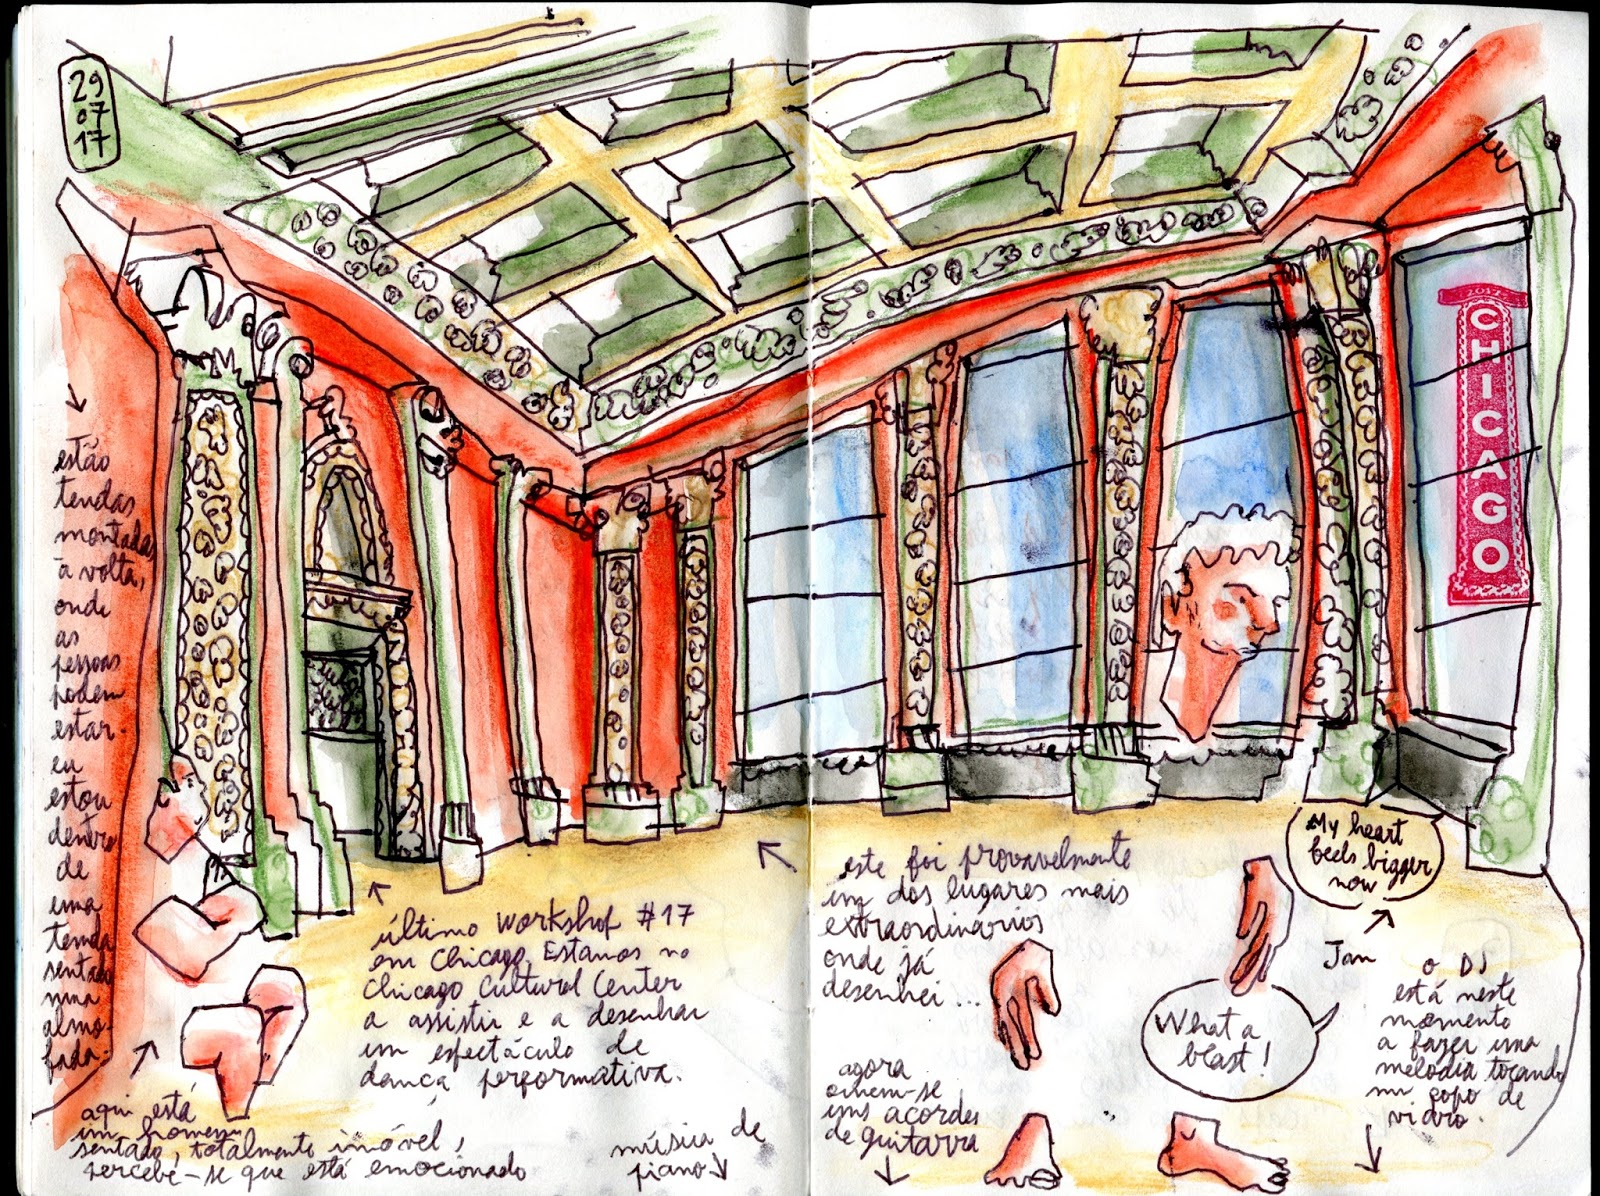 29
07
17
estão
tendas
montadas
à volta,
onde
as
pessoas
podem
estar.
eu
estou
dentro
de
uma
tenda
sentado
numa
almo-
fada.
aqui está
um homem
sentado, totalmente imóvel,
percebe-se que está emocionado
último workshop #17
em Chicago. Estamos no
Chicago Cultural Center
a assistir e a desenhar
um espectáculo de
dança performativa.
música de
piano
este foi provavelmente
um dos lugares mais
extraordinários
onde já
desenhei...
agora
ouvem-se
uns acordes
de guitarra
2017
CHICAGO
My heart
feels bigger
now
Jan
What a
blast!
o DJ
está neste
momento
a fazer uma
melodia tocando
num copo de
vidro.